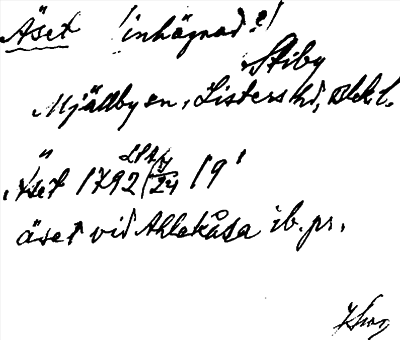 Äset (inhägnad?)
Stiby
Mjällby sn, Listers hd, Blekl.
Äset 1792 LSA 24 19
äset vid Ahlekåsa ib. pr.